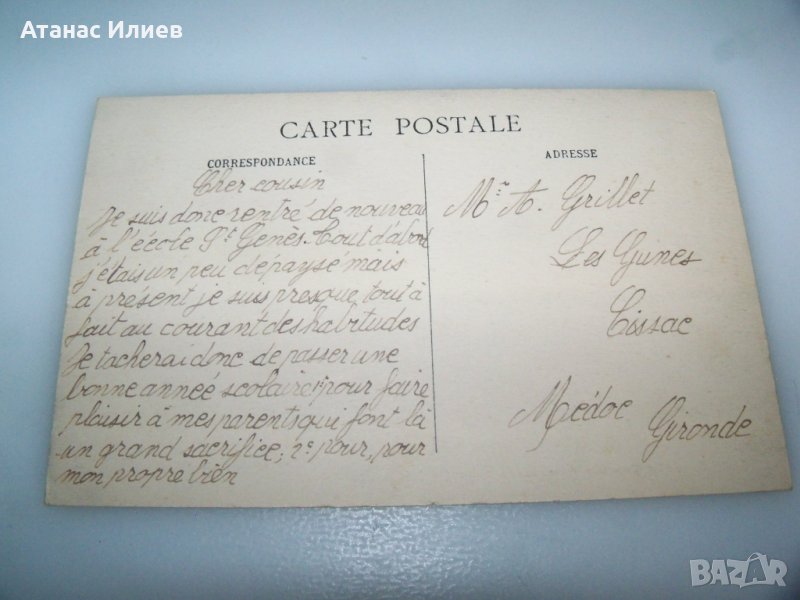 Атанас Илиев
CARTE POSTALE
CORRESPONDANCE
Cher cousin
Je suis donc rentré de nouveau
à l'école St Genès. Tout d'abord
j'étais un peu dépaysé mais
à présent je suis presque tout à
fait au courant des habitudes
Je tacherai donc de passer une
bonne année scolaire 1º pour faire
plaisir à mes parents qui font là
un grand sacrifice; 2º pour, pour
mon propre bien
ADRESSE
Mr A. Grillet
Les Gunes
Cissac
Médoc
Gironde
BAZAR